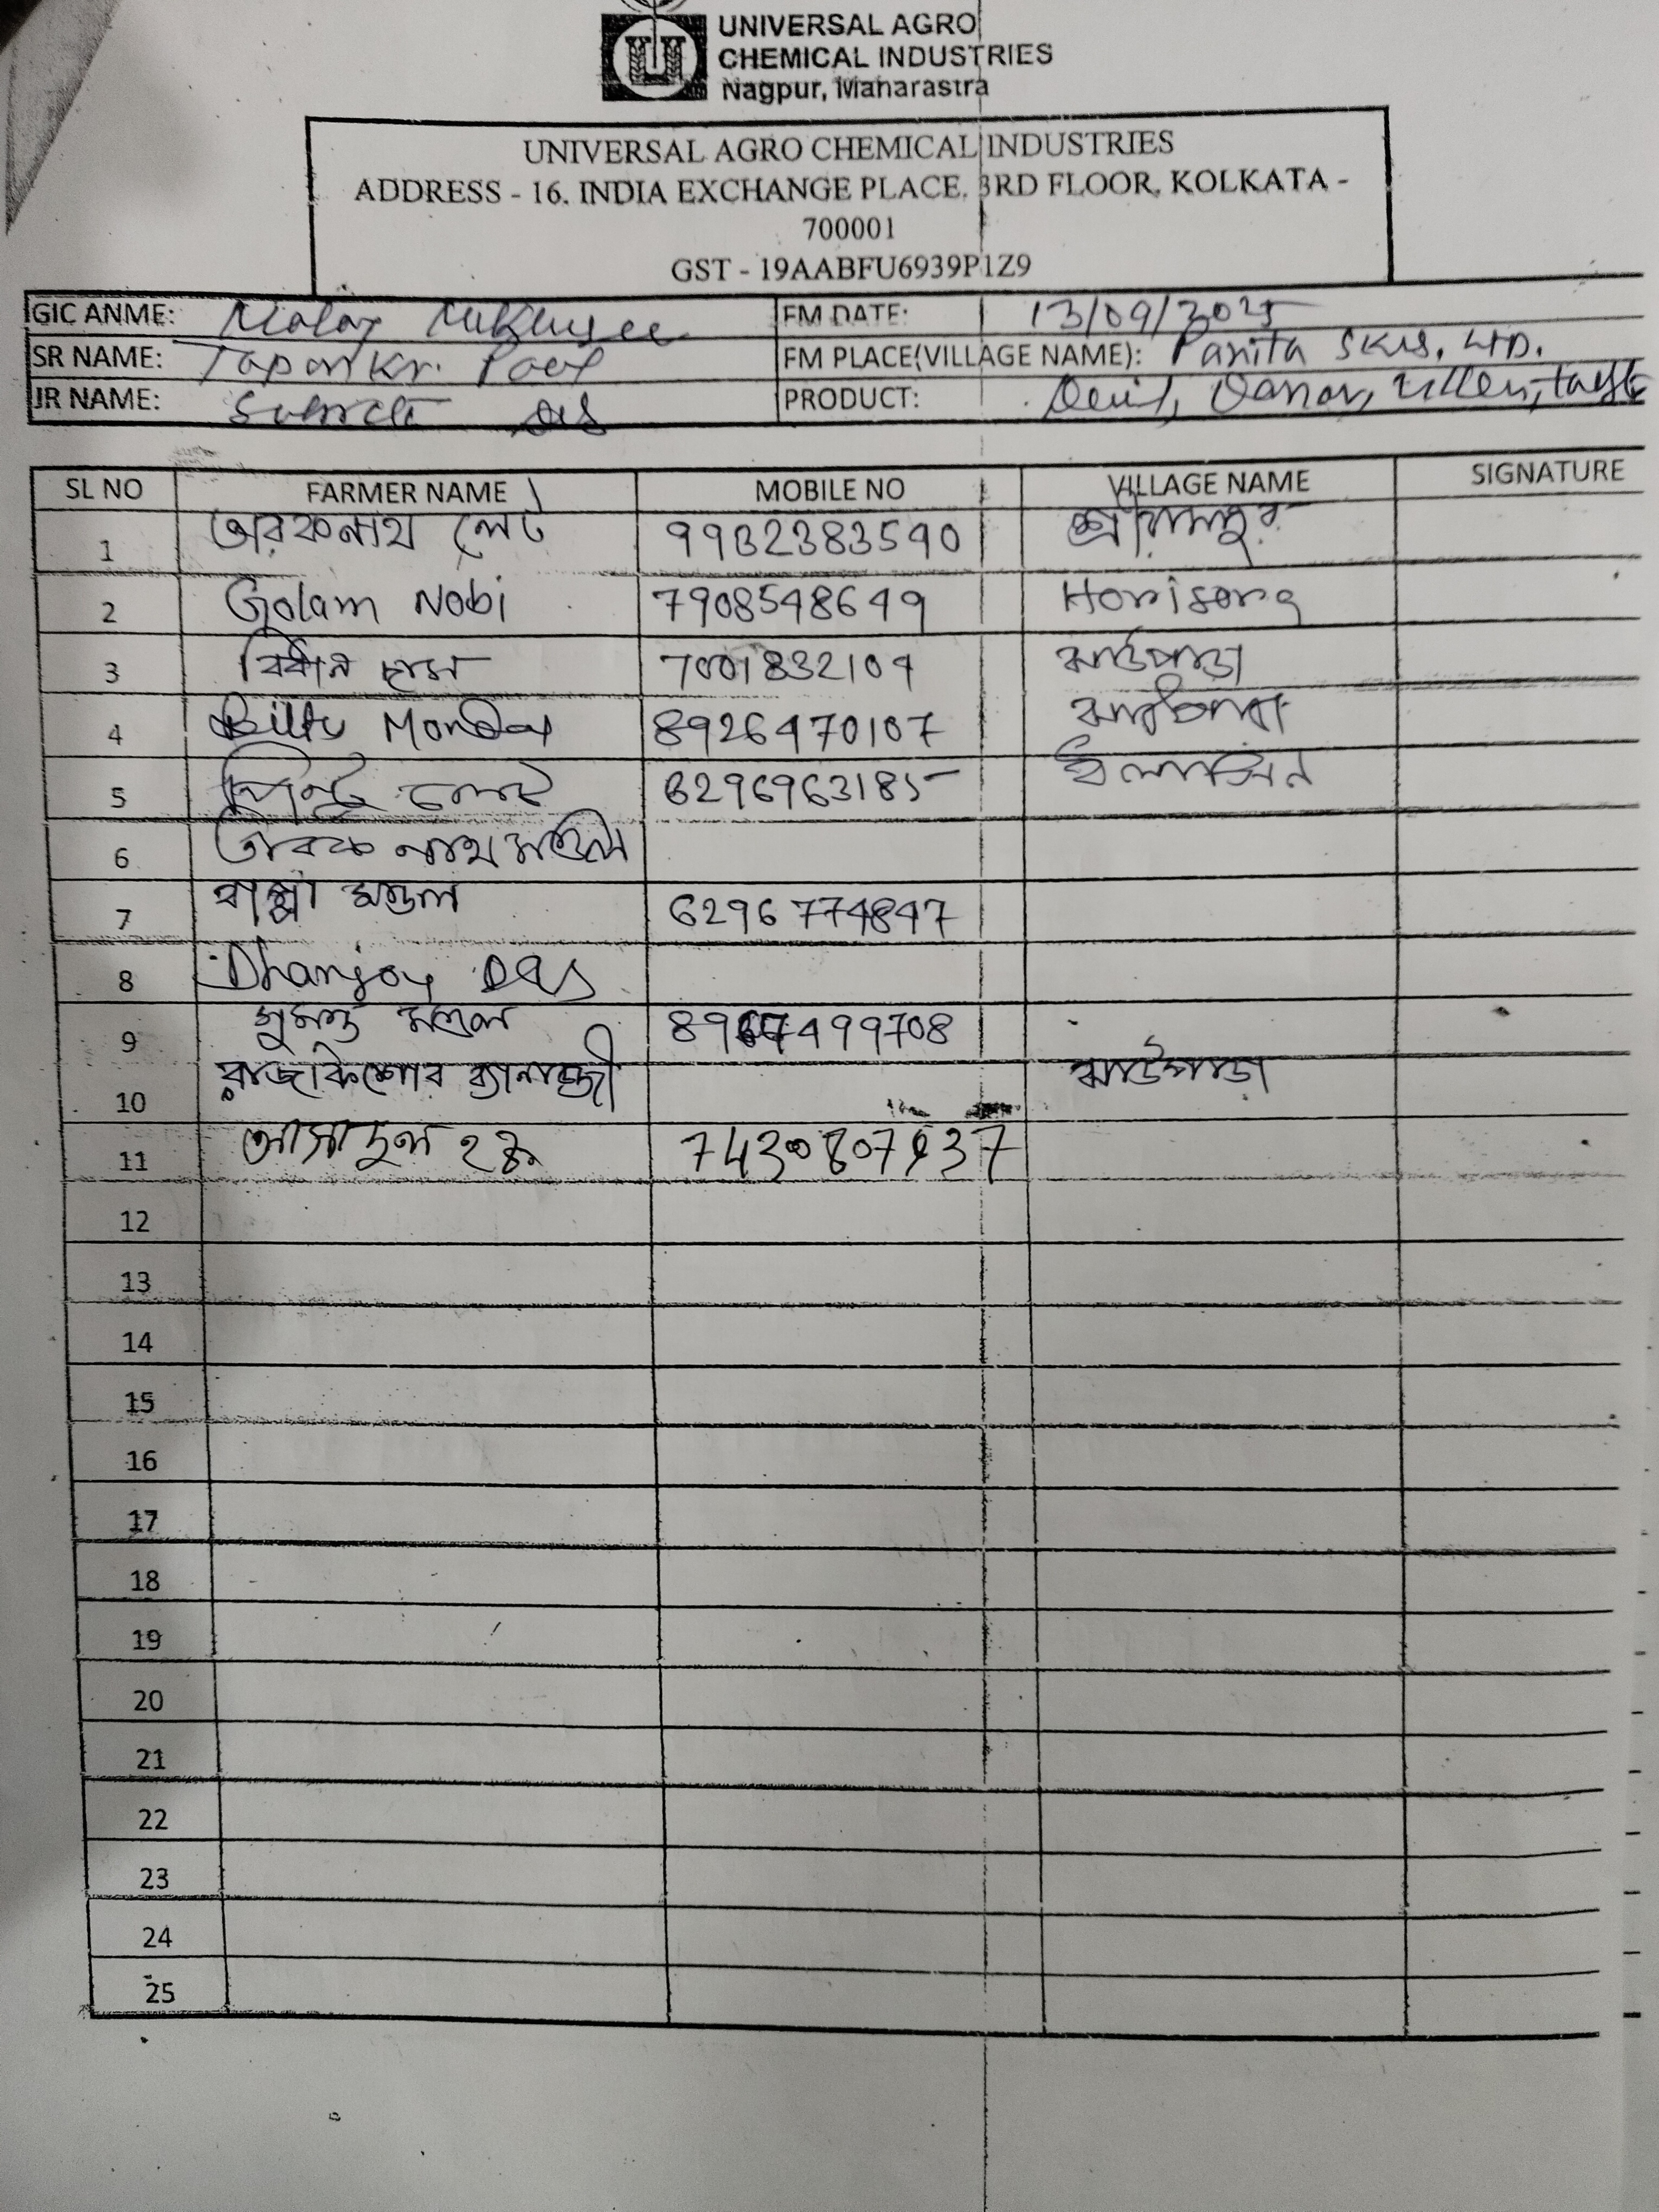 UNIVERSAL AGRO
CHEMICAL INDUSTRIES
Nagpur, Maharastra
UNIVERSAL AGRO CHEMICAL INDUSTRIES
ADDRESS - 16, INDIA EXCHANGE PLACE, 3RD FLOOR, KOLKATA -
700001
GST - 19AABFU6939P1Z9
GIC ANME: Malay Mukherjee FM DATE: 13/09/2025
SR NAME: Tapan Kr. Paul FM PLACE(VILLAGE NAME): Panita SKUS. LTD.
JR NAME: Subrata Das PRODUCT: Devil,
SL NO FARMER NAME MOBILE NO VILLAGE NAME SIGNATURE
1 তারকনাথ লেট 9932383590
2 Golam Nobi 7908548649
3 বিধান দাস 7001832109 ঝাউপাড়া
4 Biltu Mondal 8926470107
5 6296963185
6 তারক নাথ মণ্ডল
7 বাপ্পা মণ্ডল 6296774847
8 Dhanjoy Das
9 সুমন্ত মণ্ডল
10 রাজকিশোর ব্যানার্জী ঝাউপাড়া
11
12
13
14
15
16
17
18
19
20
21
22
23
24
25